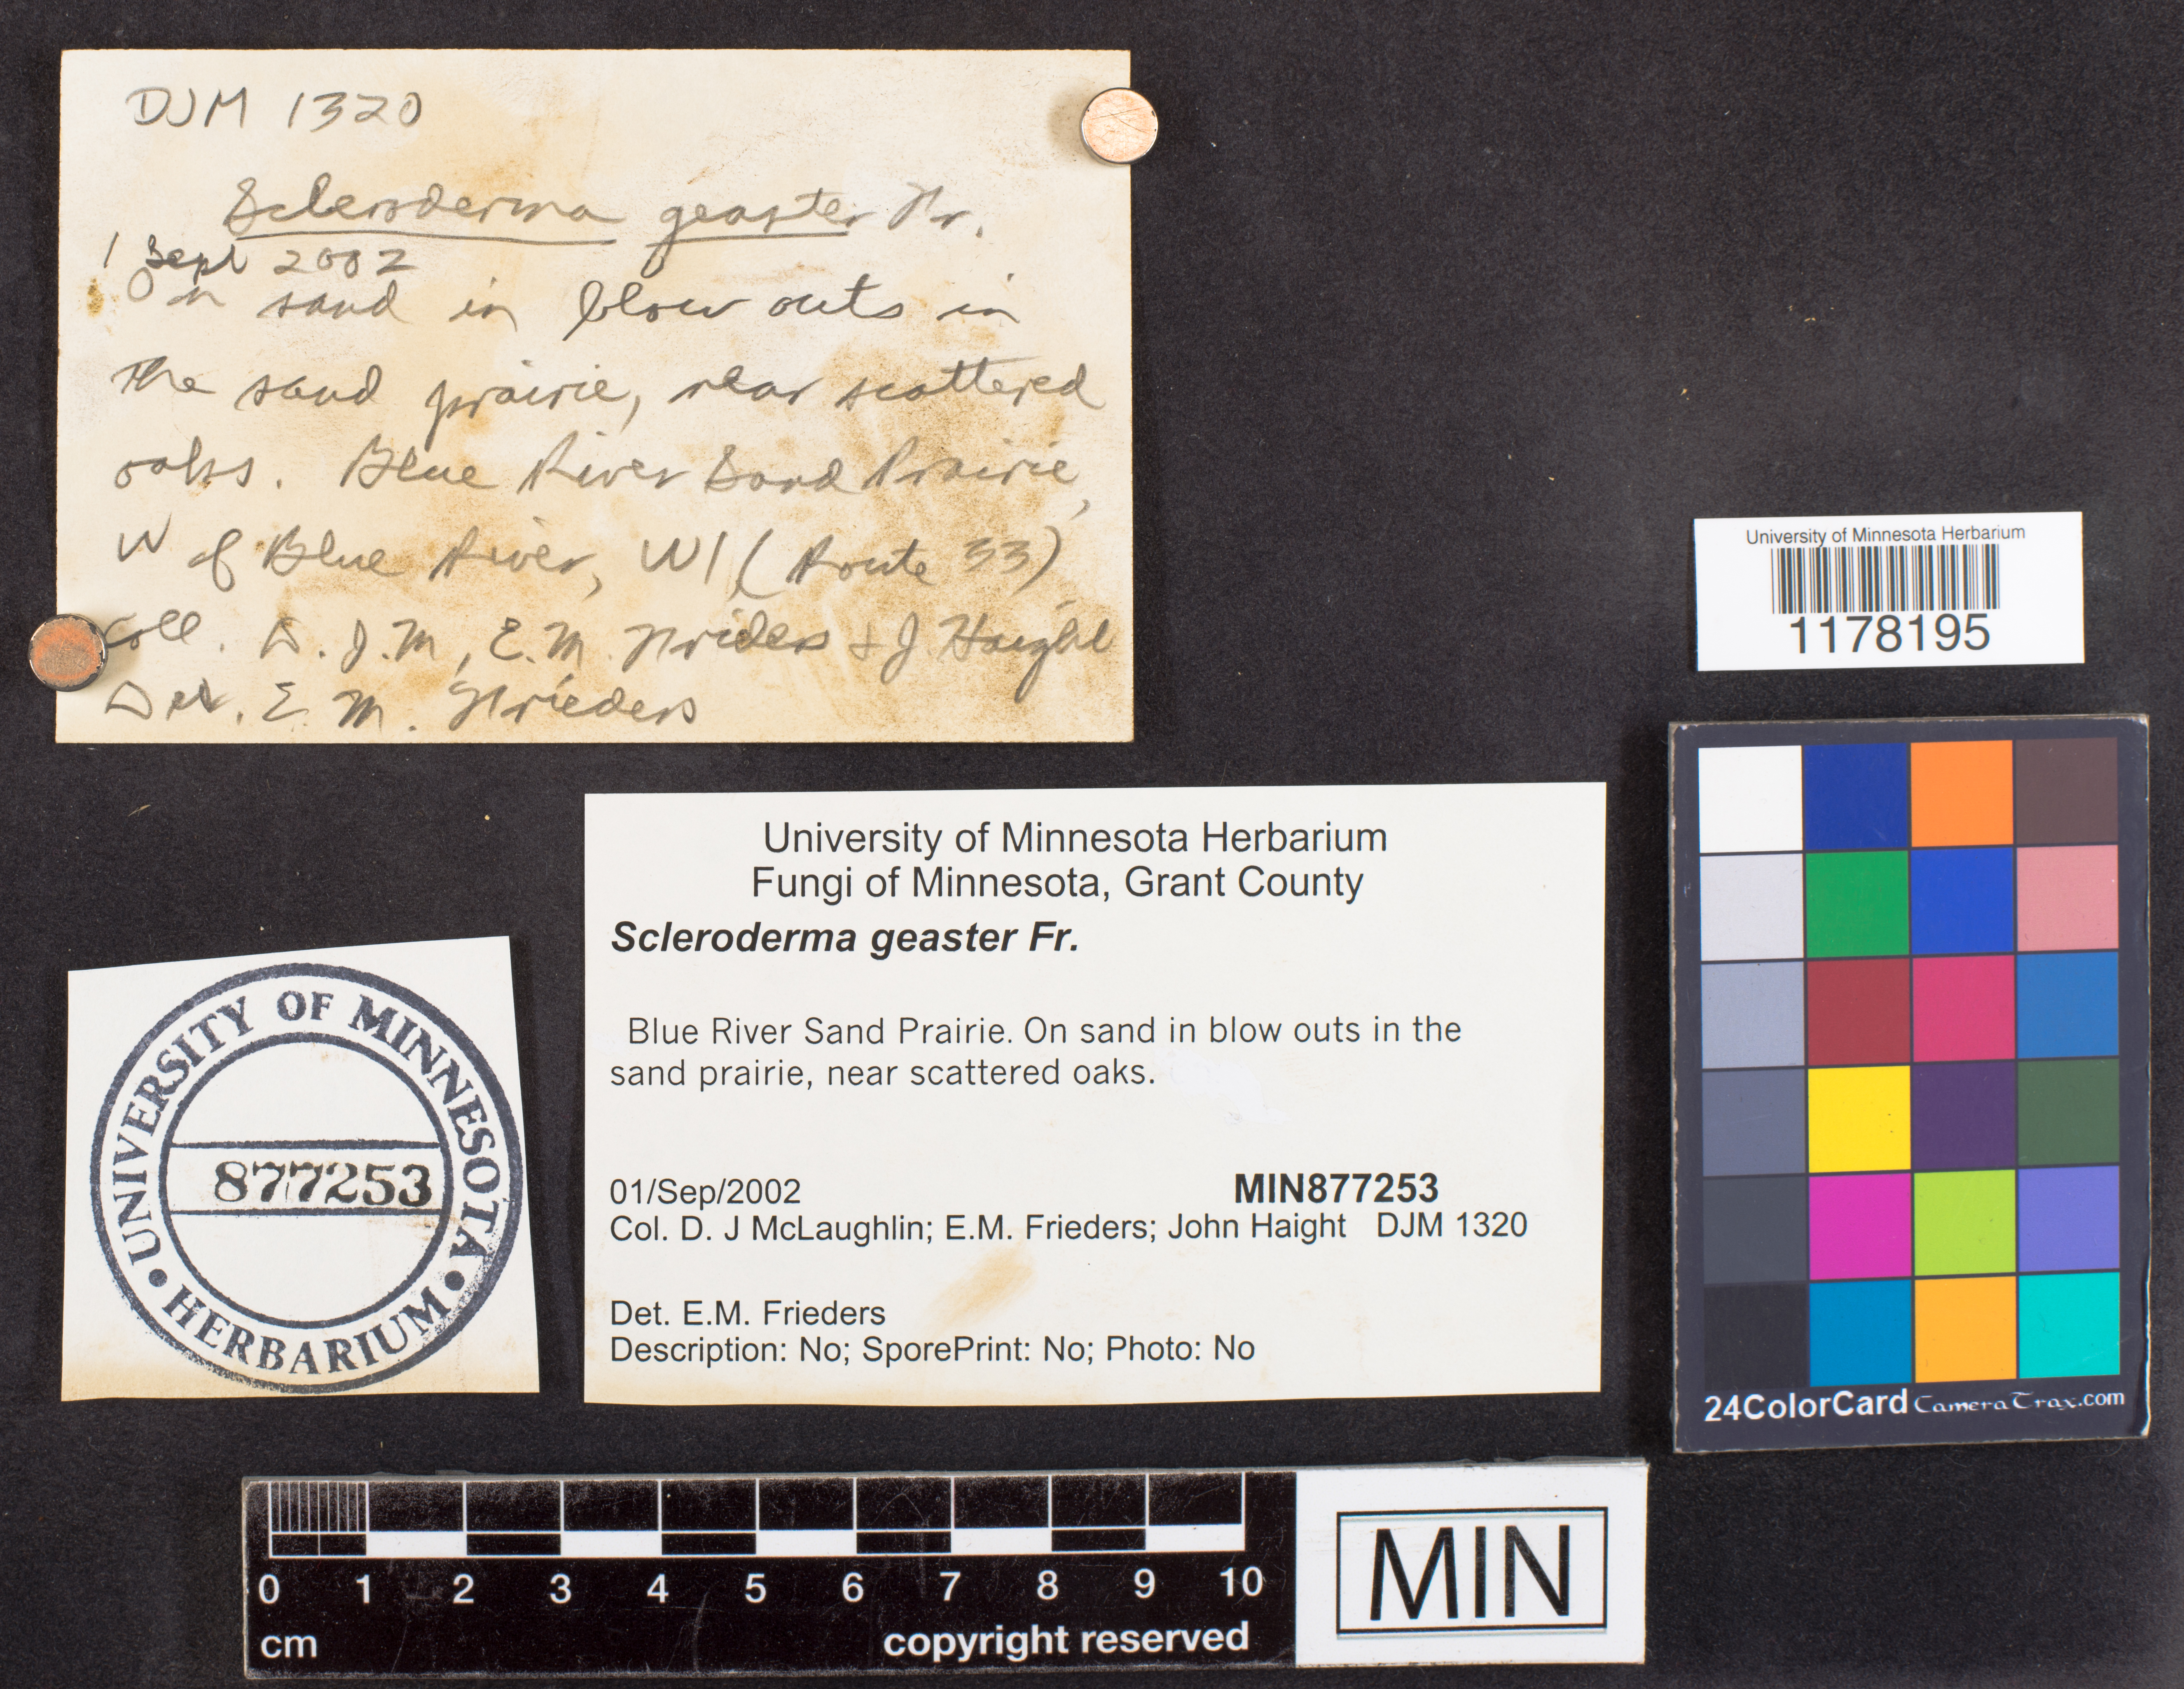 DJM 1320
Scleroderma geaster Fr.
1 Sept 2002
On sand in blow outs in
the sand prairie, near scattered
oaks. Blue River Sand Prairie,
W of Blue River, WI (Route 33)
Coll. D.J.M, E.M. Frieders + J. Haight
Det. E.M. Frieders
University of Minnesota Herbarium
1178195
University of Minnesota Herbarium
Fungi of Minnesota, Grant County
Scleroderma geaster Fr.
Blue River Sand Prairie. On sand in blow outs in the
sand prairie, near scattered oaks.
01/Sep/2002 MIN877253
Col. D. J McLaughlin; E.M. Frieders; John Haight DJM 1320
Det. E.M. Frieders
Description: No; SporePrint: No; Photo: No
UNIVERSITY OF MINNESOTA
877253
HERBARIUM
24ColorCard CameraTrax.com
0 1 2 3 4 5 6 7 8 9 10
cm copyright reserved
MIN